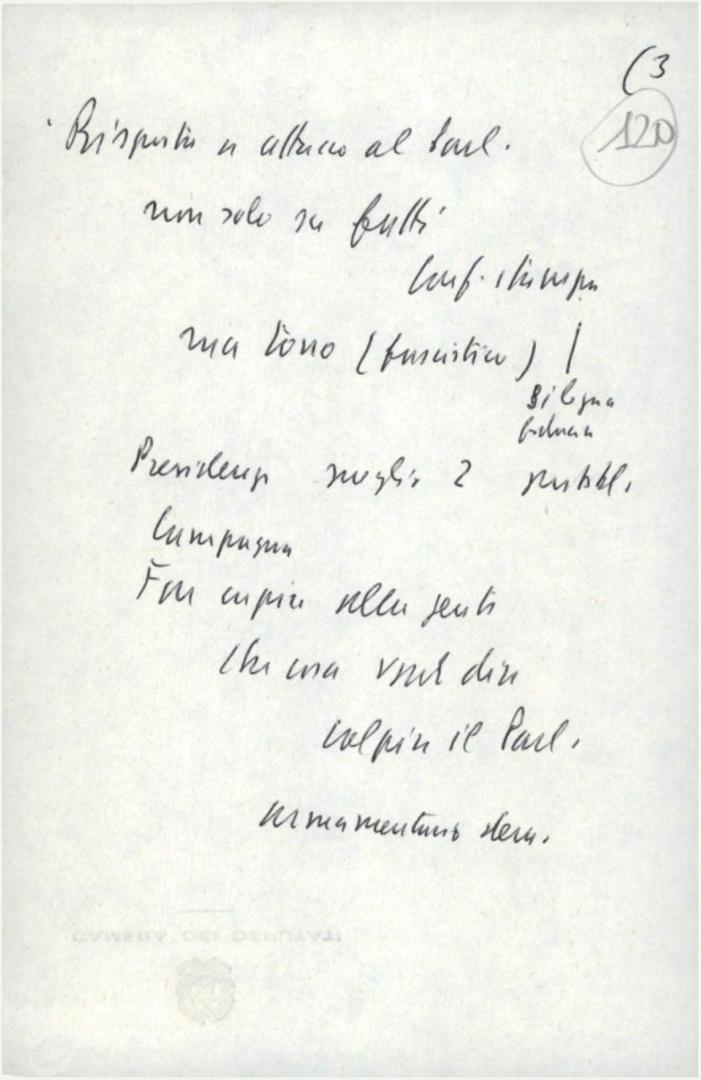 (3
120
Risposta a attacco al Parl.
non solo su fatti
Conf. stampa
ma tono (fascistico) |
Bologna
Presidenza 2
Campagna
Far capire alla gente
che cosa vuol dire
colpire il Parl.
armamentario
CAMERA DEI DEPUTATI